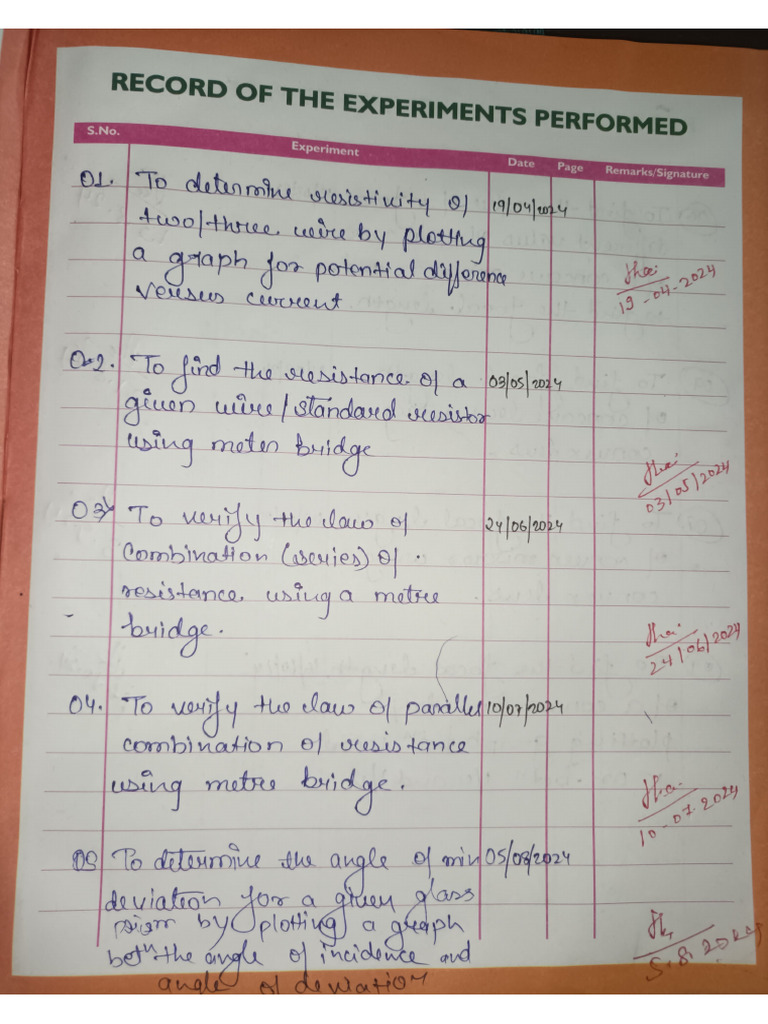 RECORD OF THE EXPERIMENTS PERFORMED
S.No. Experiment Date Page Remarks/Signature
01. To determine resistivity of 19/04/2024
two/three wire by plotting
a graph for potential difference
versus current
Jha
19-04-2024
02. To find the resistance of a 03/05/2024
given wire/standard resistor
using meter bridge
Jha
03/05/2024
03 To verify the law of 24/06/2024
combination (series) of
resistance using a metre
bridge.
Jha
24/06/2024
04. To verify the law of parallel 10/07/2024
combination of resistance
using metre bridge.
Jha
10-07-2024
05 To determine the angle of min 05/08/2024
deviation for a given glass
prism by plotting a graph
betn the angle of incidence and
angle of deviation
5.8.2024